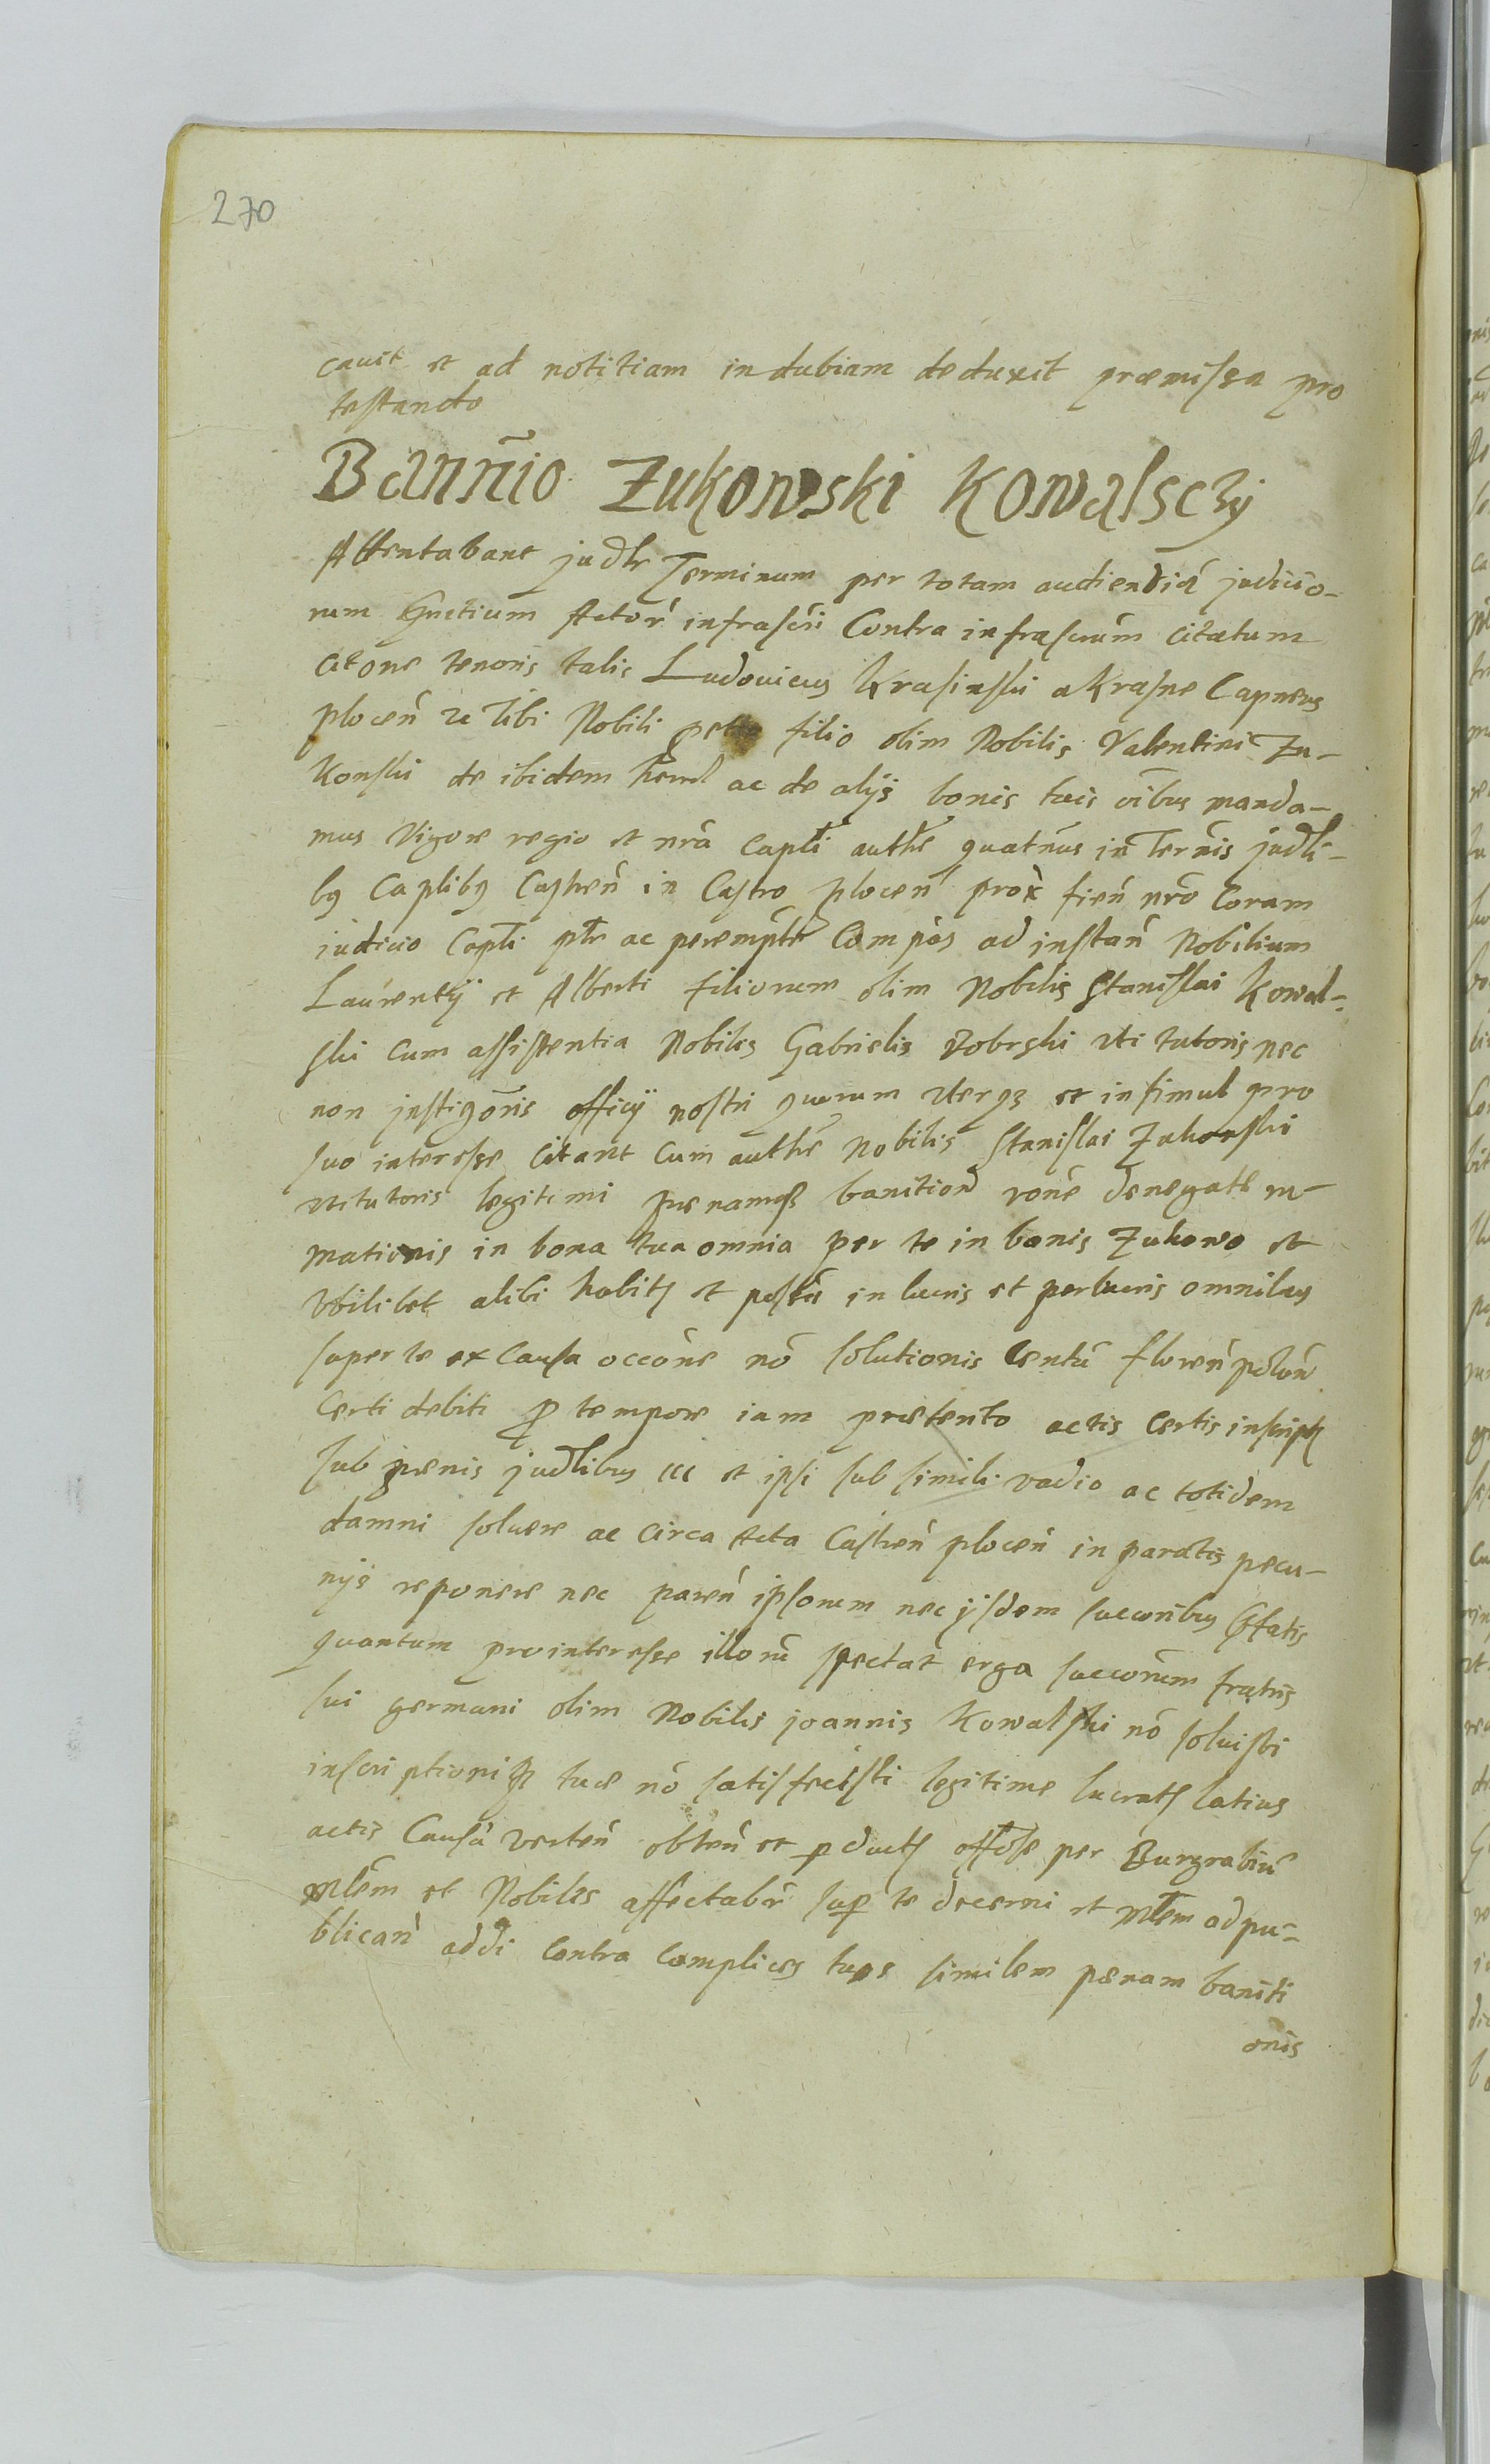 270
cavit et ad notitiam indubiam deduxit præmissa pro
testando
Bannĩo Zukowski Kowalsczÿ
Attentabant judłr Terminum per totam audienciã judicio-
rum Gnetium Actoř infrascři Contra infrascrũm citatum
citone tenoris talis Ludovicus Krasinski a Krasne Capneus
plocen̄ &c Tibi Nobili petro filio olim Nobilis Valentini Zu-
kowski de ibidem hered ac de alijs bonis tuis oĩbus manda-
mus Vigore regio et nr̃a Capłi authe quatn̄us in Termis judłi-
bȝ Caplibȝ Castren̄ in Castro plocen̄ prox̀ fien̄ nr̃o Coram
iudicio Capłi płr ac peremptr̃ Compàs ad instan̄ Nobilium
Laurentÿ et Alberti filiorum olim Nobilis Stanislai Kowal-
ski cum assistentia Nobilis Gabrielis Zobrski uti tutoris nec
non instigõris officÿ nostri quorum uterqȝ et insimul pro
suo interesse citant Cum authe Nobilis Stanislai Zukowski
uti tutoris legitimi pænamqȝ banition rone denegatæ in-
mationis in bona tua omnia per te in bonis Zukowo et
Ubilibet alibi habitȝ et possess̄ in lucris et perlucris omnibus
super te ex Causa occõne nõ solutionis Centũ floren̄ polon̄
Certi debiti p tempore iam prætento actis certis inscriptȝ
sub pænis judłibus ccc et ipsi sub simili vadio ac totidem
damni solvere ac circa Acta Castren̄ plocen̄ in paratis pecu-
nÿs reponere nec paren̄ ipsorum nec ijsdem succoribus pstatis
quantum pro interesse illorũ spectat erga succorem fratris
sui germani olim Nobilis joannis Kowalski nõ solvisti
inscriptioniqȝ tuæ nõ satisfecisti legitime lucratȝ latius
actis Causã verten̄ obten̄ et pductȝ offiose per Burgrabiũ
Młem et Nobiles affectabr̃ sup te decerni et Młem ad pu-
blican̄ addi Contra Complices tuos similem pœnam baniti
onis